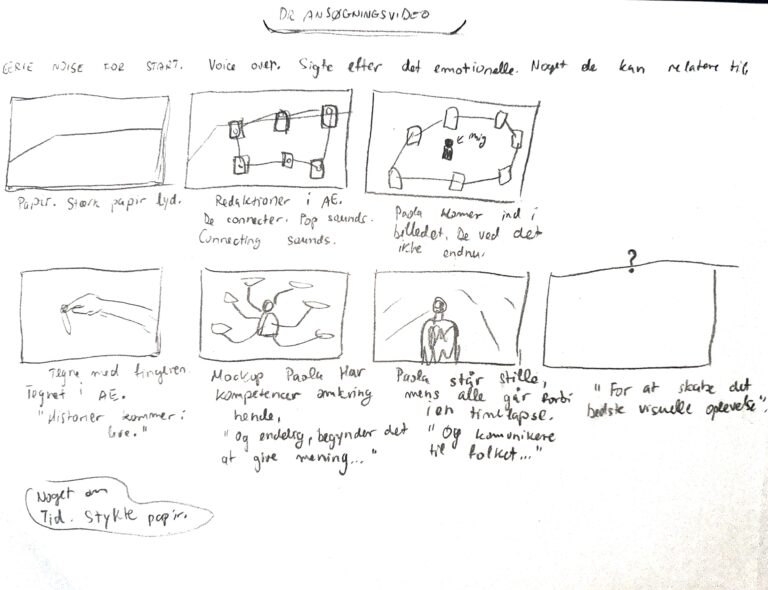 DR ANSØGNINGSVIDEO
EERIE NOISE FOR START. Voice over. Sigte efter det emotionelle. Noget de kan relatere til,
Papir. Stærk papir lyd.
Redaktioner i AE.
De connecter. Pop sounds.
Connecting sounds.
← mig
Paola kommer ind i
billedet. De ved det
ikke endnu.
Tegne med fingeren
Tegnet i AE.
"Historier kommer i
live."
Mockup Paola Har
kompetencer omkring
hende,
"Og endelig, begynder det
at give mening..."
Paola står stille,
mens alle går forbi
i en timelapse.
"Og komunikere
til folket..."
?
"For at skabe det
bedste visuelle oplevelse".
Noget om
Tid. Stykke papir.